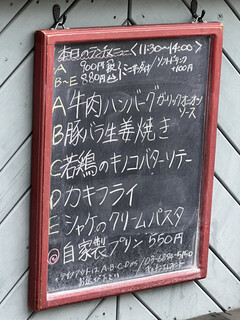 本日のランチメニュー〈11:30~14:00〉
A 900円 税
B~E 880円 込
ソフトドリンク
+100円
A 牛肉ハンバーグ ガーリックオニオン
ソース
B 豚バラ生姜焼き
C 若鶏のキノコバターソテー
D カキフライ
E シャケのクリームパスタ
◎ 自家製プリン 550円
テイクアウトは A・B・C・D